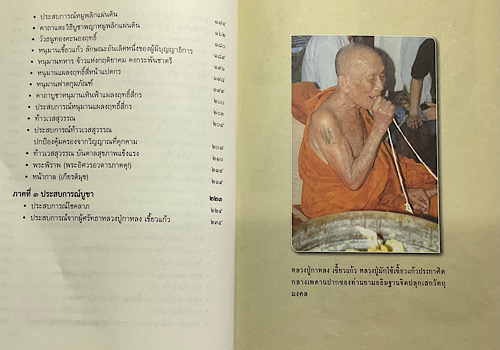 • ประสบการณ์หมูพลิกแผ่นดิน ๑๘๔
• คาถาและวิธีบูชาพญาหมูพลิกแผ่นดิน ๑๘๖
• วัวธนูทองคะนองฤทธิ์
• หนุมานเขี้ยวแก้ว ลักษณะอันเลิศหนึ่งของผู้มีบุญญาธิการ
• หนุมานทหาร จ้าวแห่งกฤติยาคม คงกระพันชาตรี
• หนุมานแผลงฤทธิ์สี่หน้าแปดกร
• หนุมานฟาดกุมภัณฑ์
• คาถาบูชาหนุมานเหินฟ้าแผลงฤทธิ์สี่กร ๒๐๐
• ประสบการณ์หนุมานแผลงฤทธิ์สี่กร
• ท้าวเวสสุวรรณ
• ประสบการณ์ท้าวเวสสุวรรณ
ปกป้องคุ้มครองจากวิญญาณที่คุกคาม
• ท้าวเวสสุวรรณ บันดาลสุขภาพแข็งแรง
• พระพิราพ (พระอิศวรอวตารภาคดุ!)
• หน้ากาล (เกียรติมุข)
ภาคที่ ๓ ประสบการณ์บูชา ๒๒๓
• ประสบการณ์โชคลาภ ๒๒๔
• ประสบการณ์จากผู้ศรัทธาหลวงปู่กาหลง เขี้ยวแก้ว ๒๓๔
หลวงปู่กาหลง เขี้ยวแก้ว หลวงปู่มักใช้เขี้ยวแก้วประกาศิต
กลางเพดานปากของท่านยามอธิษฐานจิตปลุกเสกวัตถุ
มงคล